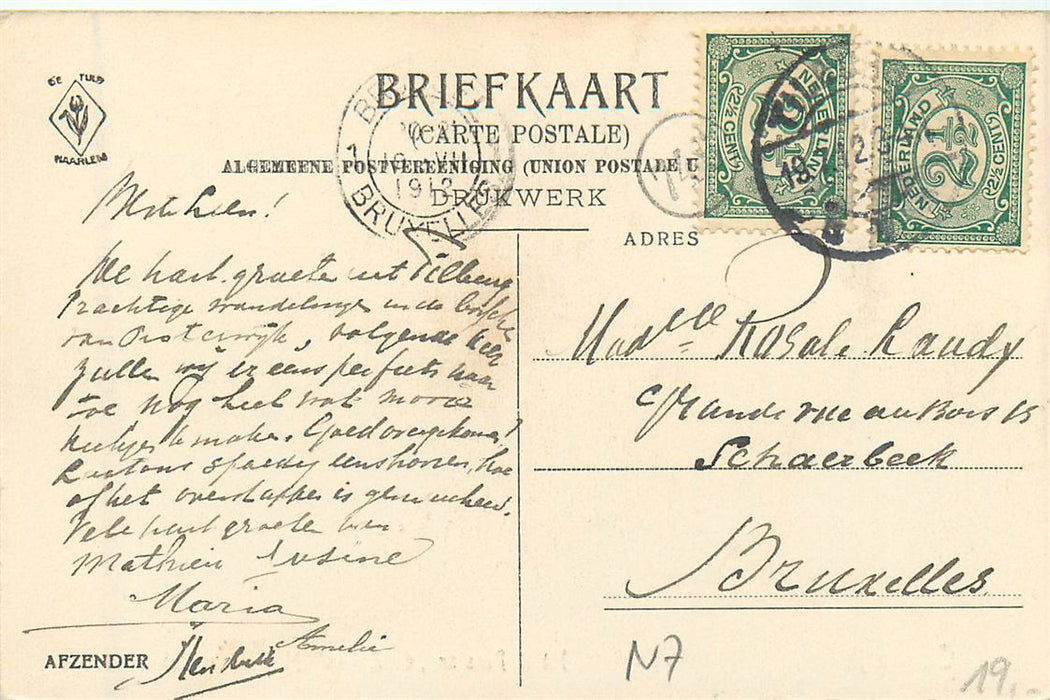 DE TULP
HAARLEM
BRIEFKAART
(CARTE POSTALE)
ALGEMEENE POSTVEREENIGING (UNION POSTALE U
DRUKWERK
ADRES
NEDERLAND
2½
(2½ CENT)
NEDERLAND
2½
(2½ CENT)
1912
BRUXELLES
De hart. groete uit Tilburg
Prachtige wandelinge in de
van Oisterwijk, volgende keer
zullen wij er eens perfect naar
toe nog heel wat mooie
te make. Goed overgekome?
Laat ons spoedig eens hooren, hoe
of het overstappen is
Vele hart groete van
Mathieu
Maria
Amelie
AFZENDER
Madelle Rosalie Landy
Grande rue au Bois
Schaerbeek
Bruxelles
N7
19,-